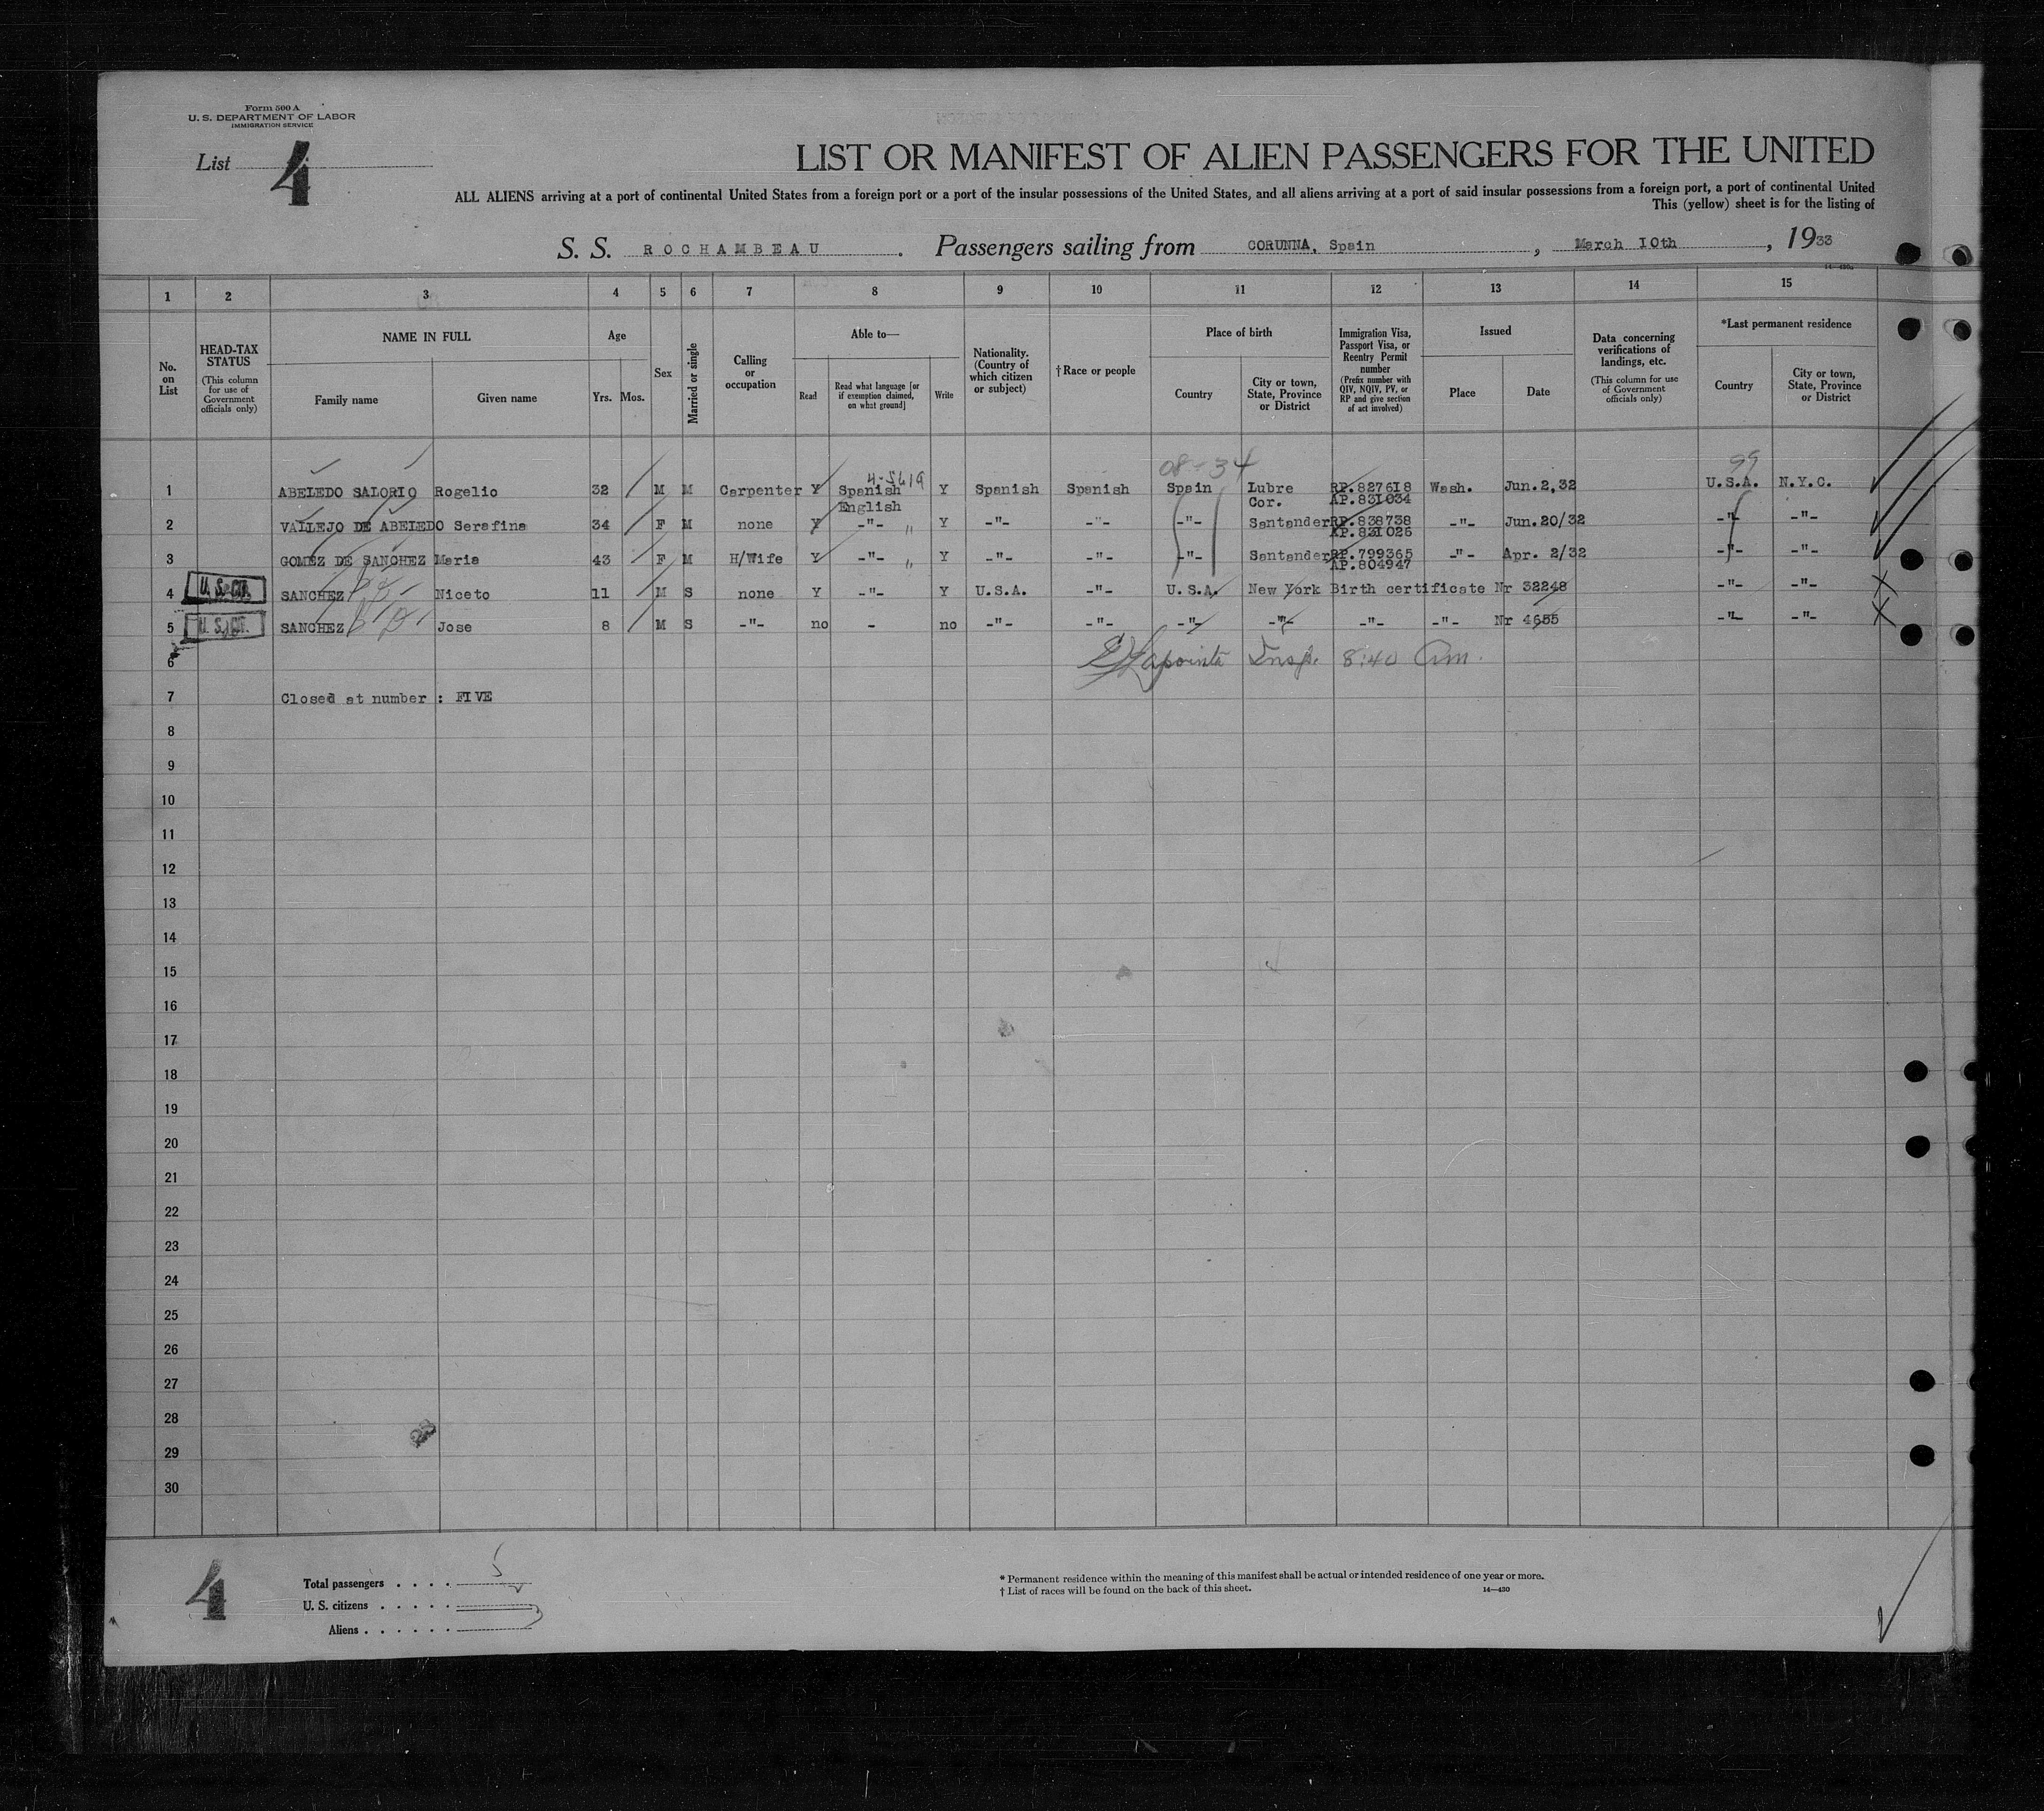 Form 500 A
U. S. DEPARTMENT OF LABOR
IMMIGRATION SERVICE
List 4
LIST OR MANIFEST OF ALIEN PASSENGERS FOR THE UNITED
ALL ALIENS arriving at a port of continental United States from a foreign port or a port of the insular possessions of the United States, and all aliens arriving at a port of said insular possessions from a foreign port, a port of continental United
This (yellow) sheet is for the listing of
S. S. ROCHAMBEAU. Passengers sailing from CORUNNA, Spain, March 10th, 1933
1 2 3 4 5 6 7 8 9 10 11 12 13 14 15
No. on List
HEAD-TAX STATUS
(This column for use of Government officials only)
NAME IN FULL
Family name
Given name
Age
Yrs. Mos.
Sex
Married or single
Calling or occupation
Able to—
Read
Read what language [or if exemption claimed, on what ground]
Write
Nationality. (Country of which citizen or subject)
†Race or people
Place of birth
Country
City or town, State, Province or District
Immigration Visa, Passport Visa, or Reentry Permit number
(Prefix number with QIV, NQIV, PV, or RP and give section of act involved)
Issued
Place
Date
Data concerning verifications of landings, etc.
(This column for use of Government officials only)
*Last permanent residence
Country
City or town, State, Province or District
4-5619 08-34 99
1 ABELEDO SALORIO Rogelio 32 M M Carpenter Y Spanish Y Spanish Spanish Spain Lubre RP.827618 Wash. Jun.2,32 U.S.A. N.Y.C.
English Cor. AP.831034
2 VALLEJO DE ABELEDO Serafina 34 F M none Y -"- " Y -"- -"- -"- Santander RP.838738 -"- Jun.20/32 -"- -"-
AP.831026
3 GOMEZ DE SANCHEZ Maria 43 F M H/Wife Y -"- " Y -"- -"- -"- Santander RP.799365 -"- Apr. 2/32 -"- -"-
AP.804947
U.S. CIT. 4 SANCHEZ Niceto 11 M S none Y -"- Y U.S.A. -"- U.S.A. New York Birth certificate Nr 32248 -"- -"-
U.S. CIT. 5 SANCHEZ Jose 8 M S -"- no - no -"- -"- -"- -"- -"- -"- Nr 4655 -"- -"-
6 Lapointe Insp. 8:40 am.
7 Closed at number : FIVE
8
9
10
11
12
13
14
15
16
17
18
19
20
21
22
23
24
25
26
27
28
29
30
4
Total passengers . . . . 5
U. S. citizens . . . . .
Aliens . . . . . .
* Permanent residence within the meaning of this manifest shall be actual or intended residence of one year or more.
† List of races will be found on the back of this sheet. 14—430